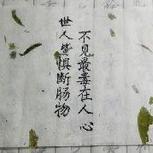 世人皆惧断肠物
不见最毒在人心